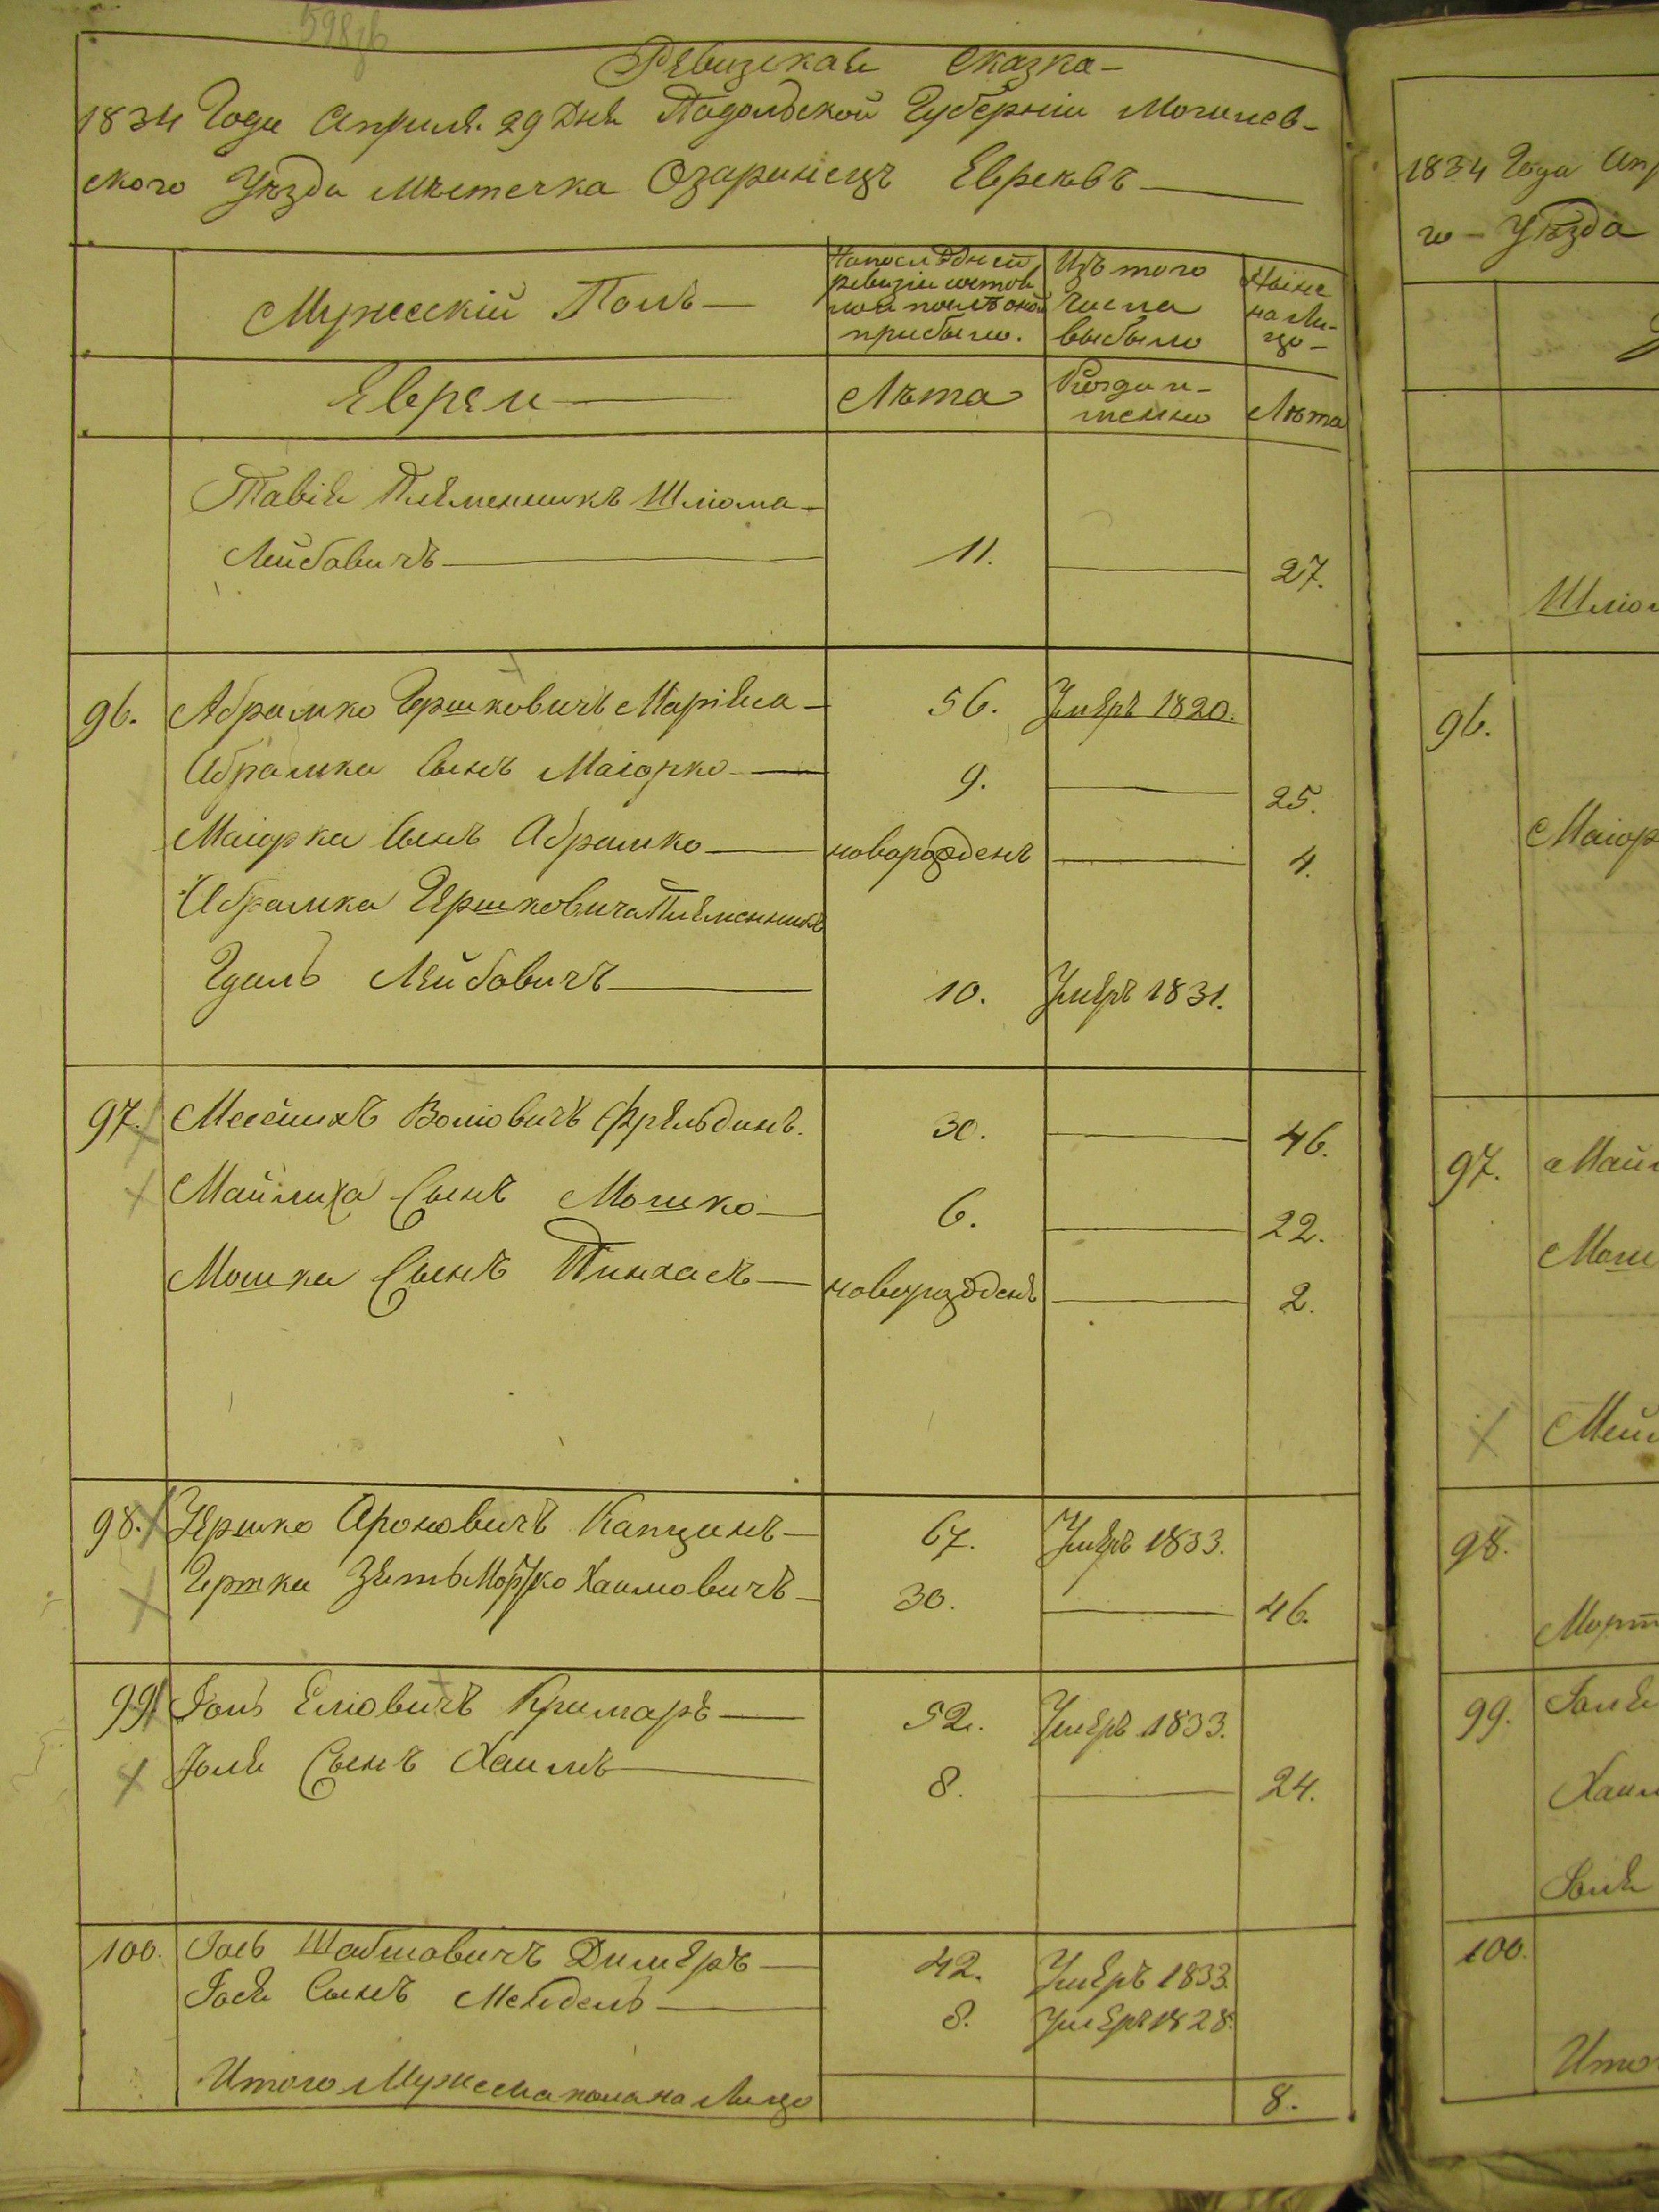 598 об
Ревизская Сказка
1834 Года Апреля 29 Дня Подольской Губерніи Могилев-
ского Уѣзда Мѣстечка Озаринецъ Евреювъ
Мужескій Полъ
На последней
ревизіи состоя
ло и послѣ оной
прибыло.
Изъ того
числа
выбыло
Ныне
на Ли-
цо
Евреи
Лѣта
Когда и-
менно
Лѣта
Тавія Племенникъ Шліома
Лейбовичъ
11.
27.
96.
Абрамко Гершковичъ
56.
Умеръ 1820.
Абрамка Сынъ Маіорко
9.
25.
Маіорка Сынъ Абрамко
новорожденъ
4.
Абрамка Гершковича Племенникъ
Гдаль Лейбовичъ
10.
Умеръ 1831.
97.
Воліовичъ
30.
46.
Маймиха Сынъ Мошко
6.
22.
Мошка Сынъ Пинхасъ
новорожденъ
2.
98.
Гершко Ароновичъ Капцинъ
67.
Умеръ 1833.
Гершка Зять Мортко Хаимовичъ
30.
46.
99.
Іоль Еліовичъ Кримаръ
52.
Умеръ 1833.
Іоля Сынъ Хаимъ
8.
24.
100.
Іось Шабшовичъ Димеръ
42.
Умеръ 1833.
Іося Сынъ Мендель
8.
Умеръ 1828.
Итого Мужеска пола на Лицо
8.
1834 Года Апр
го Уѣзда
Шліом
96.
Маіор
97.
Майм
Мош
Мейм
98.
Морт
99.
Іоля
Хаим
Іоля
100.
Итог